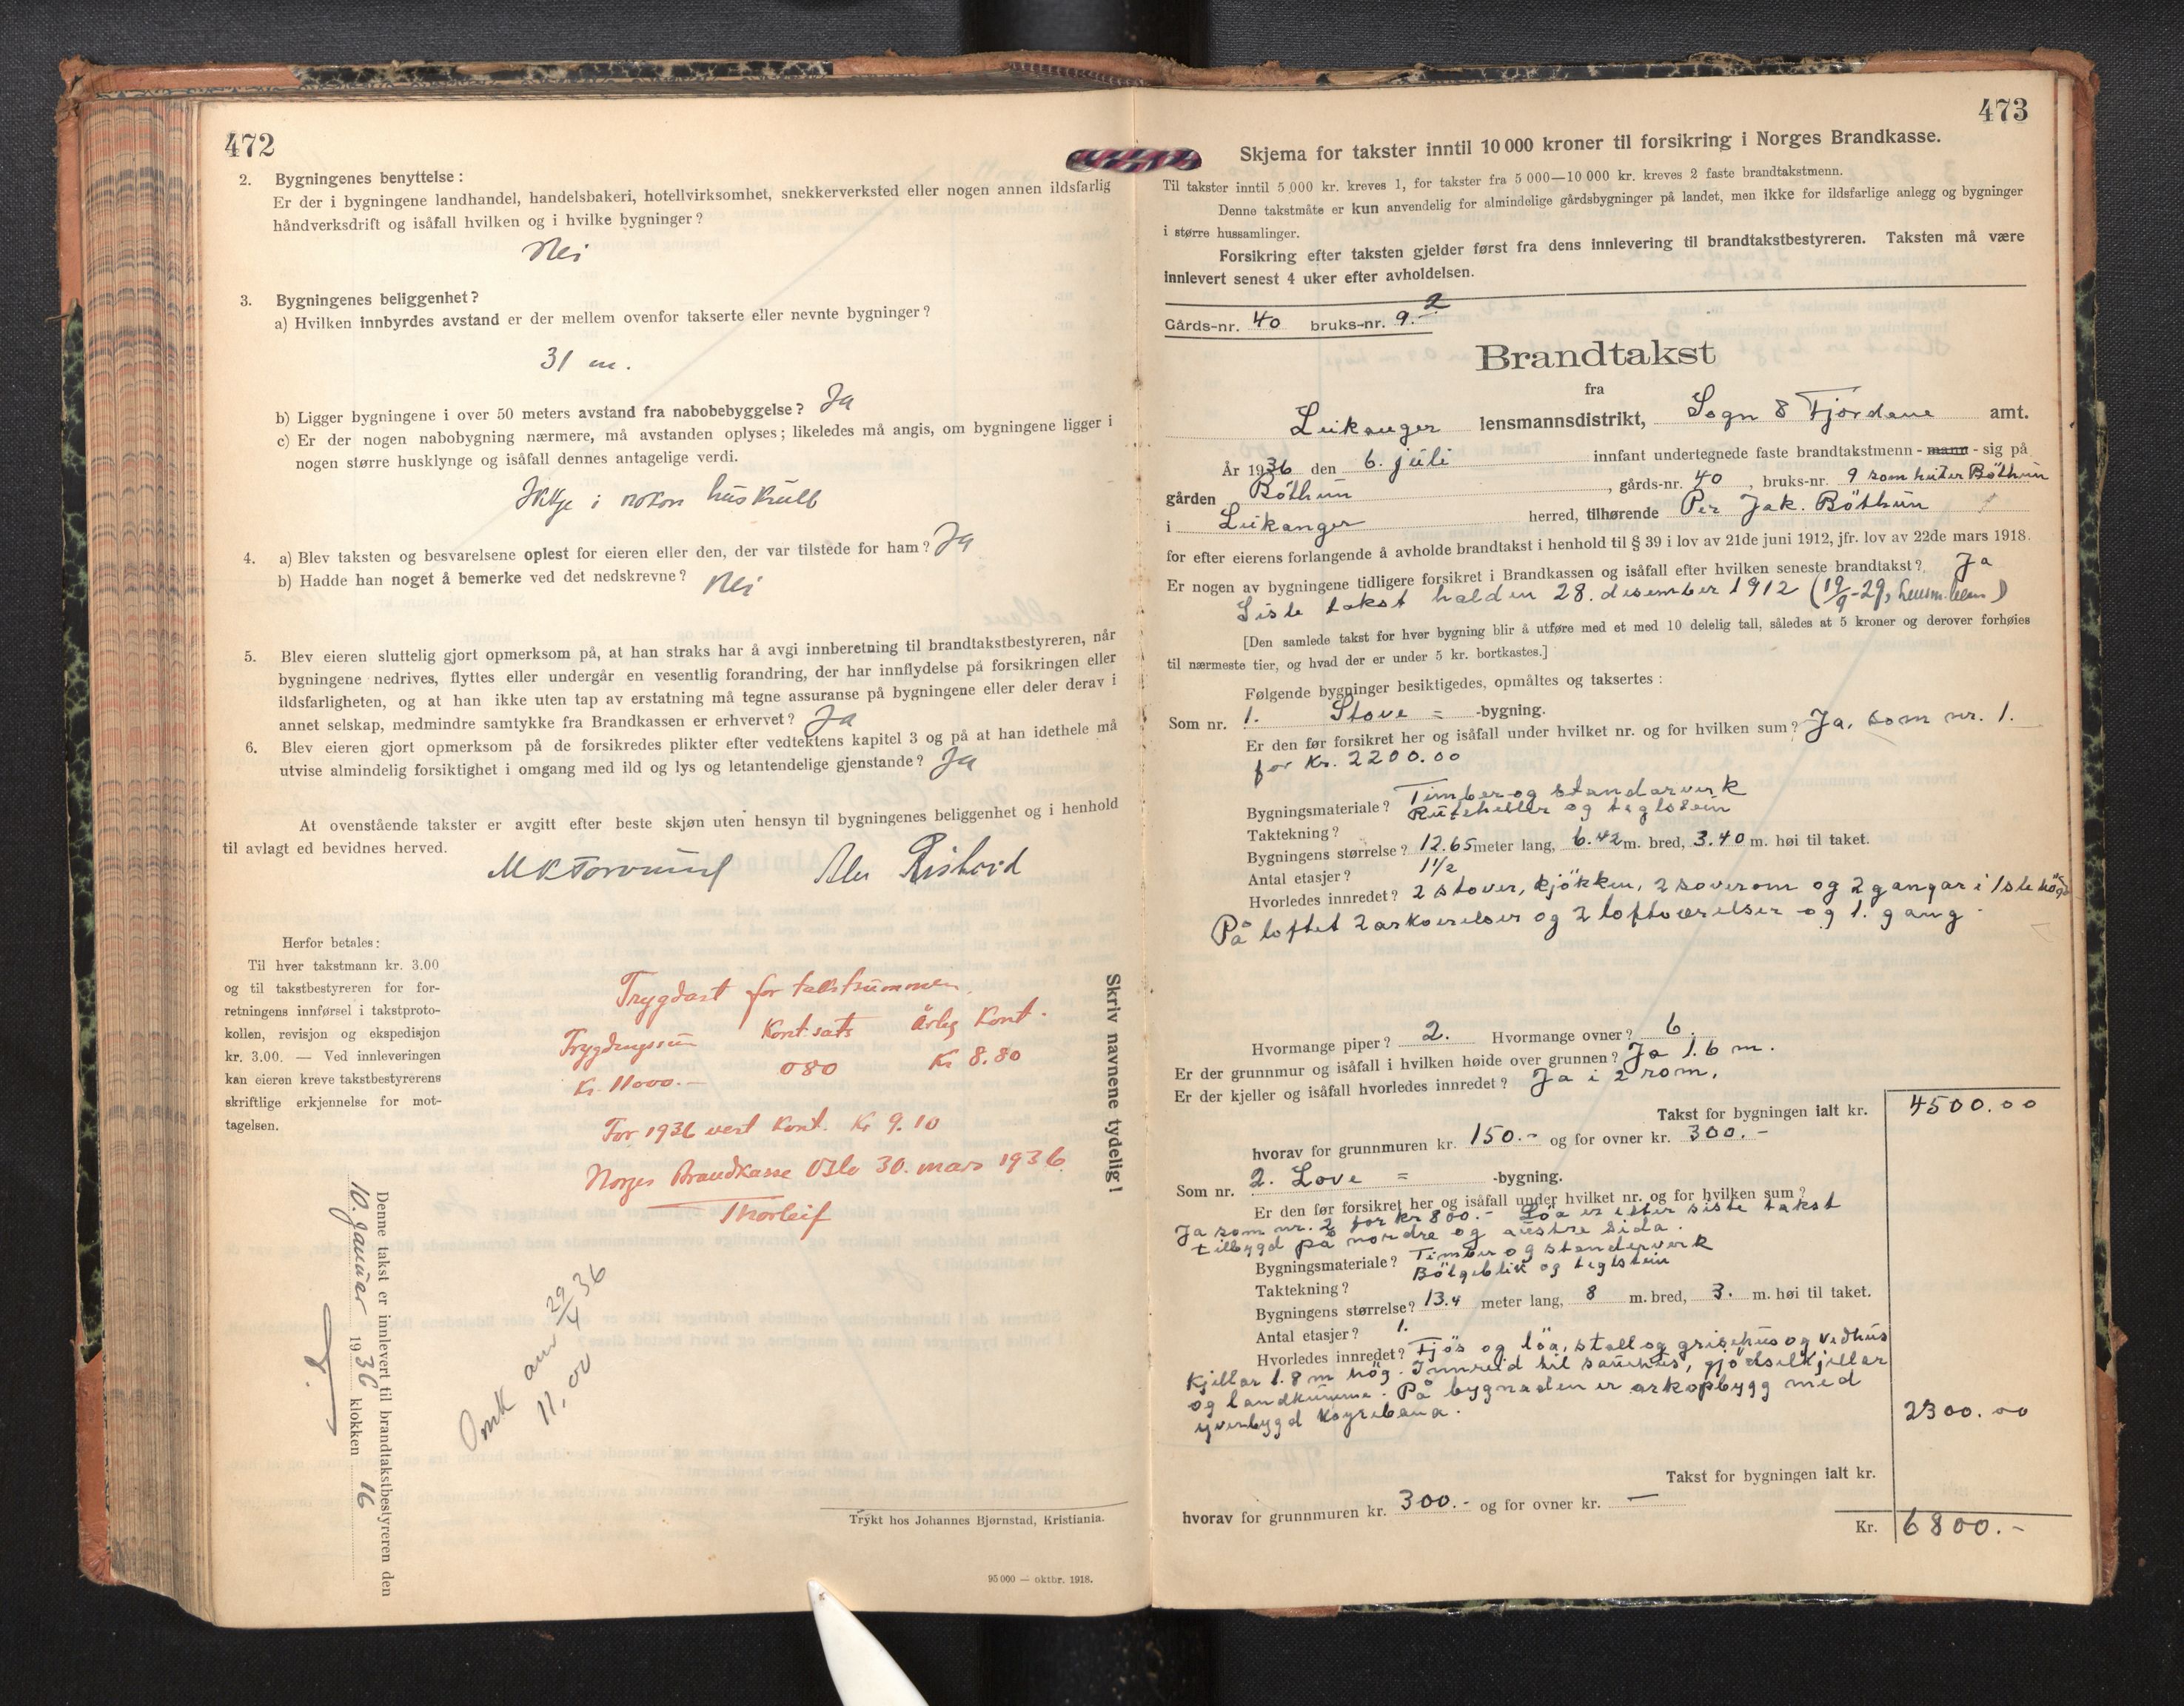 472
2. Bygningenes benyttelse:
Er der i bygningene landhandel, handelsbakeri, hotellvirksomhet, snekkerverksted eller nogen annen ildsfarlig
håndverksdrift og isåfall hvilken og i hvilke bygninger?
Nei
3. Bygningenes beliggenhet?
a) Hvilken innbyrdes avstand er der mellem ovenfor takserte eller nevnte bygninger?
31 m.
b) Ligger bygningene i over 50 meters avstand fra nabobebyggelse? Ja
c) Er der nogen nabobygning nærmere, må avstanden oplyses; likeledes må angis, om bygningene ligger i
nogen større husklynge og isåfall dennes antagelige verdi.
Ikkje i nokon huskrull
4. a) Blev taksten og besvarelsene oplest for eieren eller den, der var tilstede for ham? Ja
b) Hadde han noget å bemerke ved det nedskrevne? Nei
5. Blev eieren sluttelig gjort opmerksom på, at han straks har å avgi innberetning til brandtakstbestyreren, når
bygningene nedrives, flyttes eller undergår en vesentlig forandring, der har innflydelse på forsikringen eller
ildsfarligheten, og at han ikke uten tap av erstatning må tegne assuranse på bygningene eller deler derav i
annet selskap, medmindre samtykke fra Brandkassen er erhvervet? Ja
6. Blev eieren gjort opmerksom på de forsikredes plikter efter vedtektens kapitel 3 og på at han idethele må
utvise almindelig forsiktighet i omgang med ild og lys og letantendelige gjenstande? Ja
At ovenstående takster er avgitt efter beste skjøn uten hensyn til bygningenes beliggenhet og i henhold
til avlagt ed bevidnes herved.
Herfor betales:
Til hver takstmann kr. 3.00
og til takstbestyreren for for-
retningens innførsel i takstproto-
kollen, revisjon og ekspedisjon
kr. 3.00. — Ved innleveringen
kan eieren kreve takstbestyrerens
skriftlige erkjennelse for mot-
tagelsen.
Trygdast for takstsummen.
Trygdingssum Kont.sats Årleg Kont.
Kr. 11000.— 080 Kr 8.80
For 1936 vert Kont. Kr 9.10
Norges Brandkasse Oslo 30. mars 1936.
Thorleif
Skriv navnene tydelig!
Denne takst er innlevert til brandtakstbestyreren den
10. januar 1936 klokken 16
29/4 36
11,00
Trykt hos Johannes Bjørnstad, Kristiania.
95 000 — oktbr. 1918.
473
Skjema for takster inntil 10 000 kroner til forsikring i Norges Brandkasse.
Til takster inntil 5 000 kr. kreves 1, for takster fra 5 000—10 000 kr. kreves 2 faste brandtakstmenn.
Denne takstmåte er kun anvendelig for almindelige gårdsbygninger på landet, men ikke for ildsfarlige anlegg og bygninger
i større hussamlinger.
Forsikring efter taksten gjelder først fra dens innlevering til brandtakstbestyreren. Taksten må være
innlevert senest 4 uker efter avholdelsen.
Gårds-nr. 40 bruks-nr. 9. 2
Brandtakst
fra
Leikanger lensmannsdistrikt, Sogn & Fjordane amt.
År 1936 den 6. juli innfant undertegnede faste brandtakstmenn - mann - sig på
gården Böthun, gårds-nr. 40, bruks-nr. 9 som heiter Böthun
i Leikanger herred, tilhørende Per Jak. Böthun
for efter eierens forlangende å avholde brandtakst i henhold til § 39 i lov av 21de juni 1912, jfr. lov av 22de mars 1918.
Er nogen av bygningene tidligere forsikret i Brandkassen og isåfall efter hvilken seneste brandtakst? Ja
Siste takst halden 28. desember 1912 (19/9-29,
[Den samlede takst for hver bygning blir å utføre med et med 10 delelig tall, således at 5 kroner og derover forhøies
til nærmeste tier, og hvad der er under 5 kr. bortkastes.]
Følgende bygninger besiktigedes, opmåltes og taksertes:
Som nr. 1. Stove = -bygning.
Er den før forsikret her og isåfall under hvilket nr. og for hvilken sum? Ja, som nr. 1.
for Kr. 2200.00
Bygningsmateriale? Timber og standarverk
Taktekning? Ruteheller og teglstein
Bygningens størrelse? 12.65 meter lang, 6.42 m. bred, 3.40 m. høi til taket.
Antal etasjer? 1½
Hvorledes innredet? 2 stover, kjökken, 2 soverom og 2 gangar i 1ste högd
På loftet 2 arkverelser og 2 loftværelser og 1. gang.
Hvormange piper? 2. Hvormange ovner? 6.
Er der grunnmur og isåfall i hvilken høide over grunnen? Ja 1.6 m.
Er der kjeller og isåfall hvorledes innredet? Ja i 2 rom.
Takst for bygningen ialt kr. 4500.00
hvorav for grunnmuren kr. 150.- og for ovner kr. 300.-
Som nr. 2. Löve = -bygning.
Er den før forsikret her og isåfall under hvilket nr. og for hvilken sum?
Ja som nr. 2 for kr 800.- Löa er etter siste takst
tilbygd på nordre og austre sida.
Bygningsmateriale? Timber og standerverk
Taktekning? Bölgeblik og teglstein
Bygningens størrelse? 13.4 meter lang, 8 m. bred, 3. m. høi til taket.
Antal etasjer? 1.
Hvorledes innredet? Fjös og löa, stall og grisehus og vedhus
Kjellar 1.8 m hög. Innreid til sauehus, gjödselkjellar
og landkumme. På bygnaden er arkopbygg med
yverbygd köyrebana.
2300.00
Takst for bygningen ialt kr.
hvorav for grunnmuren kr. 300.- og for ovner kr. —
Kr. 6800.-